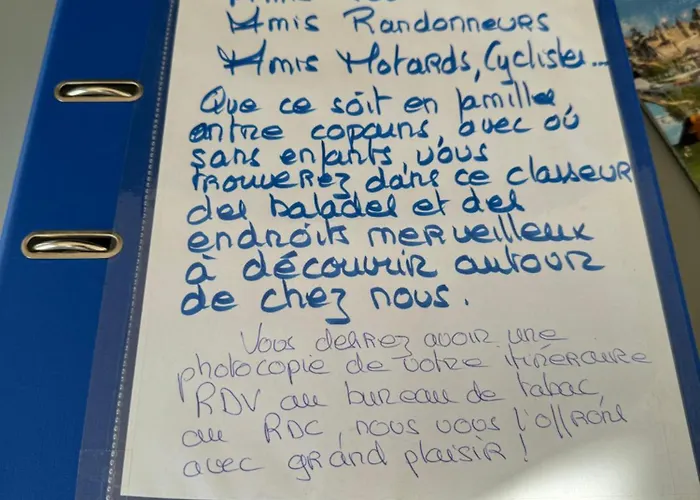 Amis Randonneurs
Amis Motards, Cyclistes...
Que ce soit en famille,
entre copains, avec où
sans enfants, vous
trouverez dans ce classeur
des balades et des
endroits merveilleux
à découvrir autour
de chez nous.
Vous désirez avoir une
photocopie de votre itinéraire
RDV au bureau de tabac,
au RDC, nous vous l'offrons
avec grand plaisir !